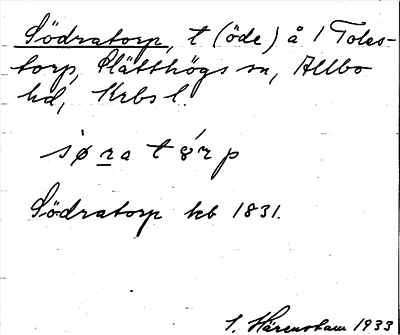 Södratorp, t (öde) å 1 Toles-
torp, Slätthögs sn, Allbo
hd, Krbs l.
sø̀ra tɞ́rp
Södratorp kb 1831.
S. Härenstam 1933